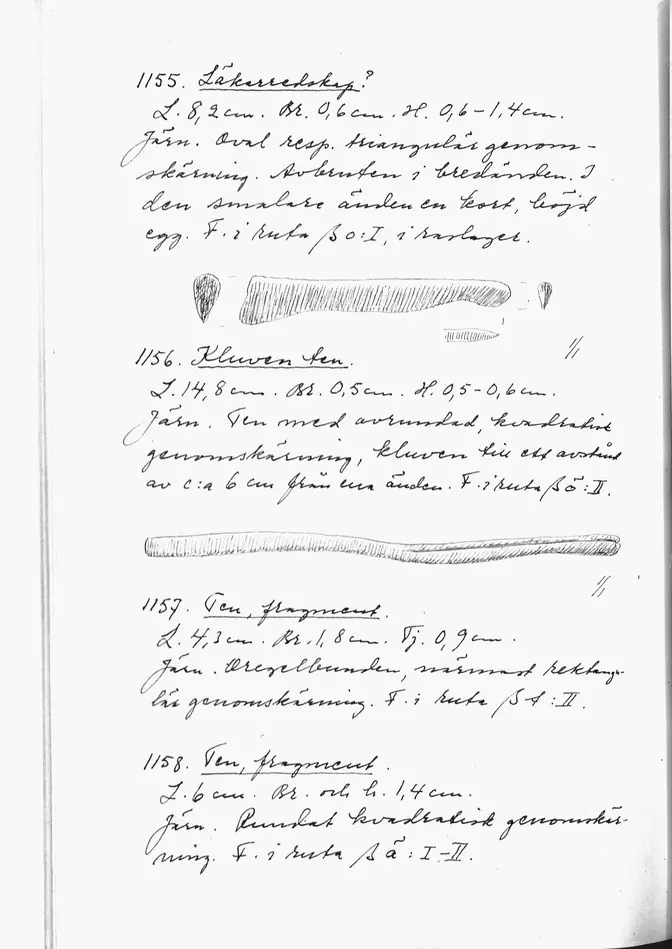 1155. Läkarredskap?
L. 8,2 cm. Br. 0,6 cm. H. 0,6–1,4 cm.
Järn. Oval resp. triangulär genom-
skärning. Avbruten i bredänden. I
den smalare änden en kort, böjd
egg. F. i ruta β o:I, i raslager.
1/1
1156. Kluven ten.
L. 14,8 cm. Br. 0,5 cm. H. 0,5–0,6 cm.
Järn. Ten med avrundad, kvadratisk
genomskärning, kluven till ett avstånd
av c:a 6 cm från ena änden. F. i ruta β ö:II.
1/1
1157. Ten, fragment.
L. 4,3 cm. Br. 1,8 cm. Tj. 0,9 cm.
Järn. Oregelbunden, närmast rektangu-
lär genomskärning. F. i ruta β :II.
1158. Ten, fragment.
L. 6 cm. Br. och h. 1,4 cm.
Järn. Rundat kvadratisk genomskär-
ning. F. i ruta β ä: I–II.